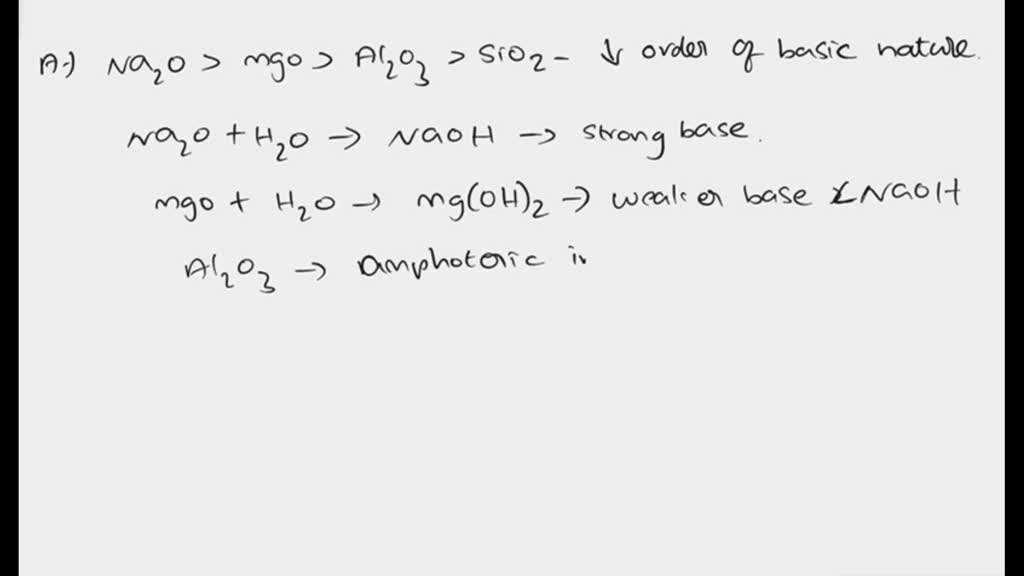 A·) Na₂O > mgo > Al₂O₃ > SiO₂ - ↓ order of basic nature.
Na₂O + H₂O → NaOH → strong base.
mgo + H₂O → mg(OH)₂ → weaker base < NaOH
Al₂O₃ → amphoteric in